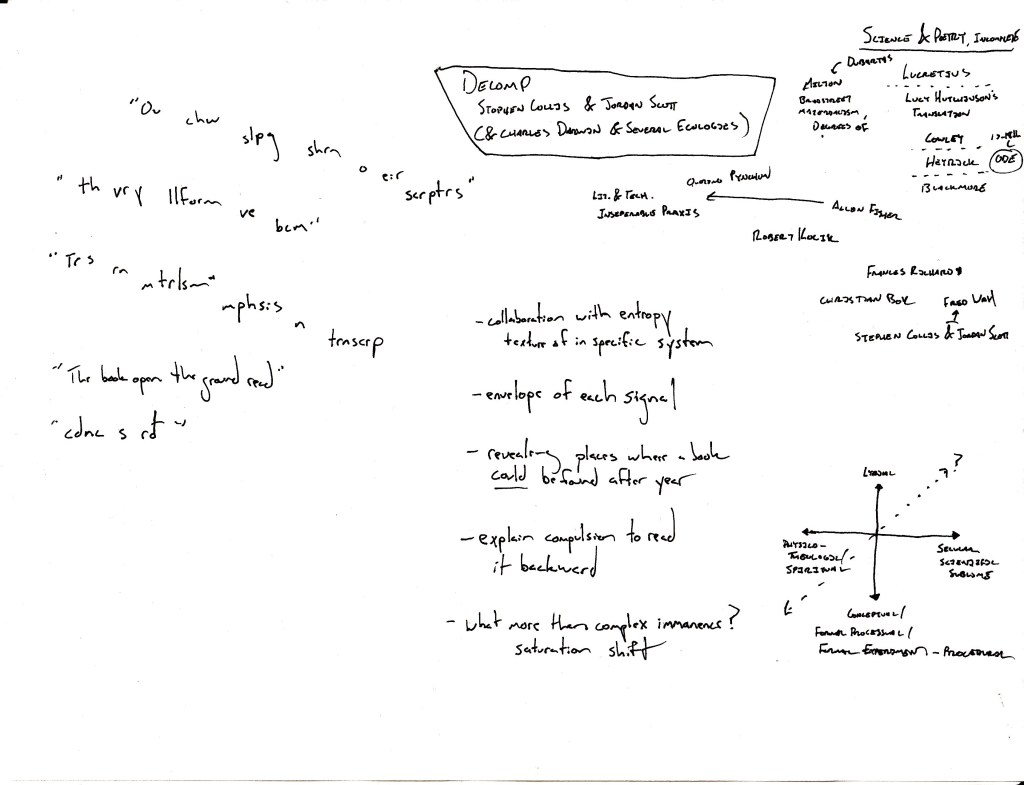 "Ou chw slpg shrn o eir scrptrs"
"th vry llform ve bcm"
"Trs rn mtrlsm"
mphsis n trnscrp
"The book open the ground read"
"cdnc s rd"
DECOMP
STEPHEN COLLIS & JORDAN SCOTT
(& CHARLES DARWIN & SEVERAL ECOLOGIES)
LIT. & TECH.
INSEPERABLE PRAXIS
QUOTING PYNCHON
ALLEN FISHER
ROBERT KOCIK
- collaboration with entropy
texture of in specific system
- envelope of each signal
- revealing places where a book
could be found after year
- explain compulsion to read
it backward
- what more than complex immanence?
saturation shift
SCIENCE & POETRY, INCOMPLETE
DUBARTAS
MILTON
BRADSTREET
MATERIALISM,
DEGREES OF
LUCRETIUS
LUCY HUTCHINSON'S
TRANSLATION
COWLEY
17-18th C
HEYRICK
ODE
BLACKMORE
FRANCES RICHARD
CHRISTIAN BOK
FRED WAH
STEPHEN COLLIS & JORDAN SCOTT
LYRICAL
?
PHYSICO-
THEOLOGICAL/
SPIRITUAL
SECULAR
SCIENTIFIC
SUBLIME
CONCEPTUAL/
FORMAL PROCESSUAL/
FORMAL EXPERIMENT - PROCEDURAL